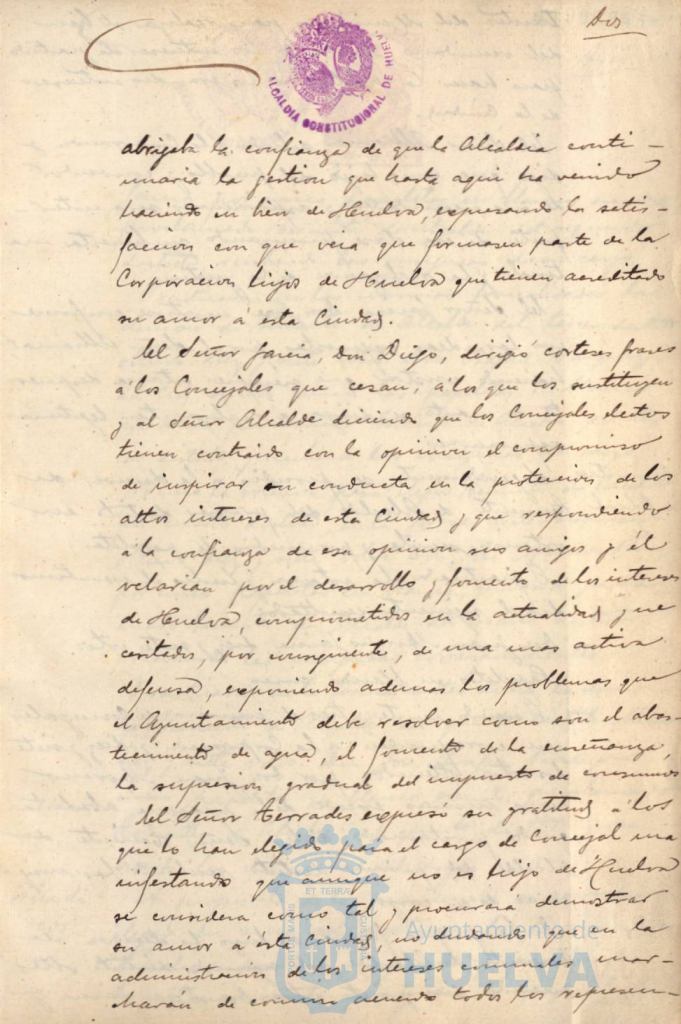 Dos
ALCALDIA CONSTITUCIONAL DE HUELVA
abrigaba la confianza de que la Alcaldia conti-
nuaria la gestion que hasta aqui ha venido
haciendo en bien de Huelva, expresando la satis-
faccion con que veia que formasen parte de la
Corporacion hijos de Huelva que tienen acreditado
su amor á esta Ciudad.
El Señor Garcia, Don Diego, dirigió corteses frases
á los Concejales que cesan, á los que los sustituyen
y al Señor Alcalde diciendo que los Concejales electos
tienen contraido con la opinion el compromiso
de inspirar su conducta en la proteccion de los
altos intereses de esta Ciudad y que respondiendo
á la confianza de esa opinion sus amigos y él
velarian por el desarrollo y fomento de los intereses
de Huelva, comprometidos en la actualidad y ne
cesitados, por consiguiente, de una mas activa
defensa, exponiendo ademas los problemas que
el Ayuntamiento debe resolver como son el abas-
tecimiento de agua, el fomento de la enseñanza,
la supresion gradual del impuesto de consumos
El Señor Terrades expresó su gratitud á los
que lo han elegido para el cargo de Concejal ma
nifestando que aunque no es hijo de Huelva
se considera como tal y procurará demostrar
su amor á esta Ciudad, no dudando que en la
administracion de los intereses comunales mar-
charán de comun acuerdo todos los represen-
ET TERRA
Ayuntamiento de
HUELVA